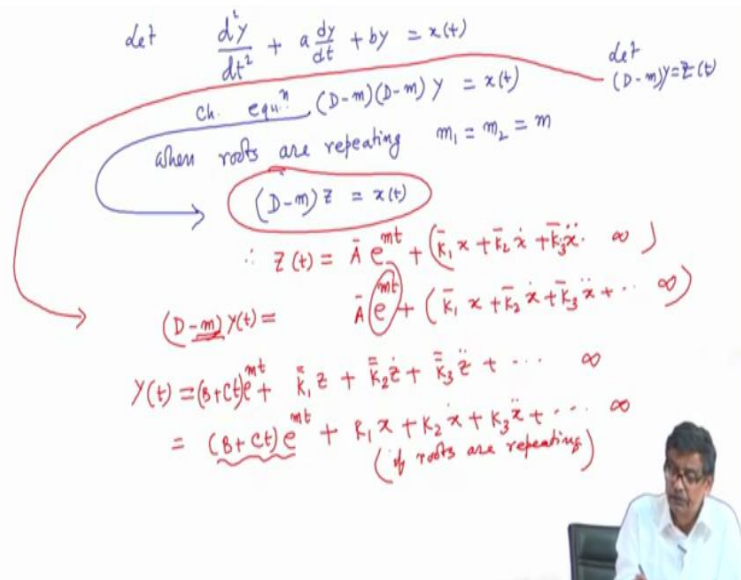 Let d²y/dt² + a dy/dt + by = x(t)
Let
(D-m)y=Z(t)
Ch. equⁿ (D-m)(D-m) y = x(t)
When roots are repeating m₁ = m₂ = m
(D-m) Z = x(t)
∴ Z(t) = Ā e^{mt} + (K̄₁ x + K̄₂ ẋ + K̄₃ ẍ. ∞ )
(D-m) Y(t) = Ā e^{mt} + (K̄₁ x + K̄₂ ẋ + K̄₃ ẍ + ·· ∞)
Y(t) = (B+Ct)e^{mt} + K̿₁ Z + K̿₂ Ż + K̿₃ Z̈ + ··· ∞
= (B+Ct) e^{mt} + K₁ x + K₂ ẋ + K₃ ẍ + ··· ∞
(if roots are repeating)